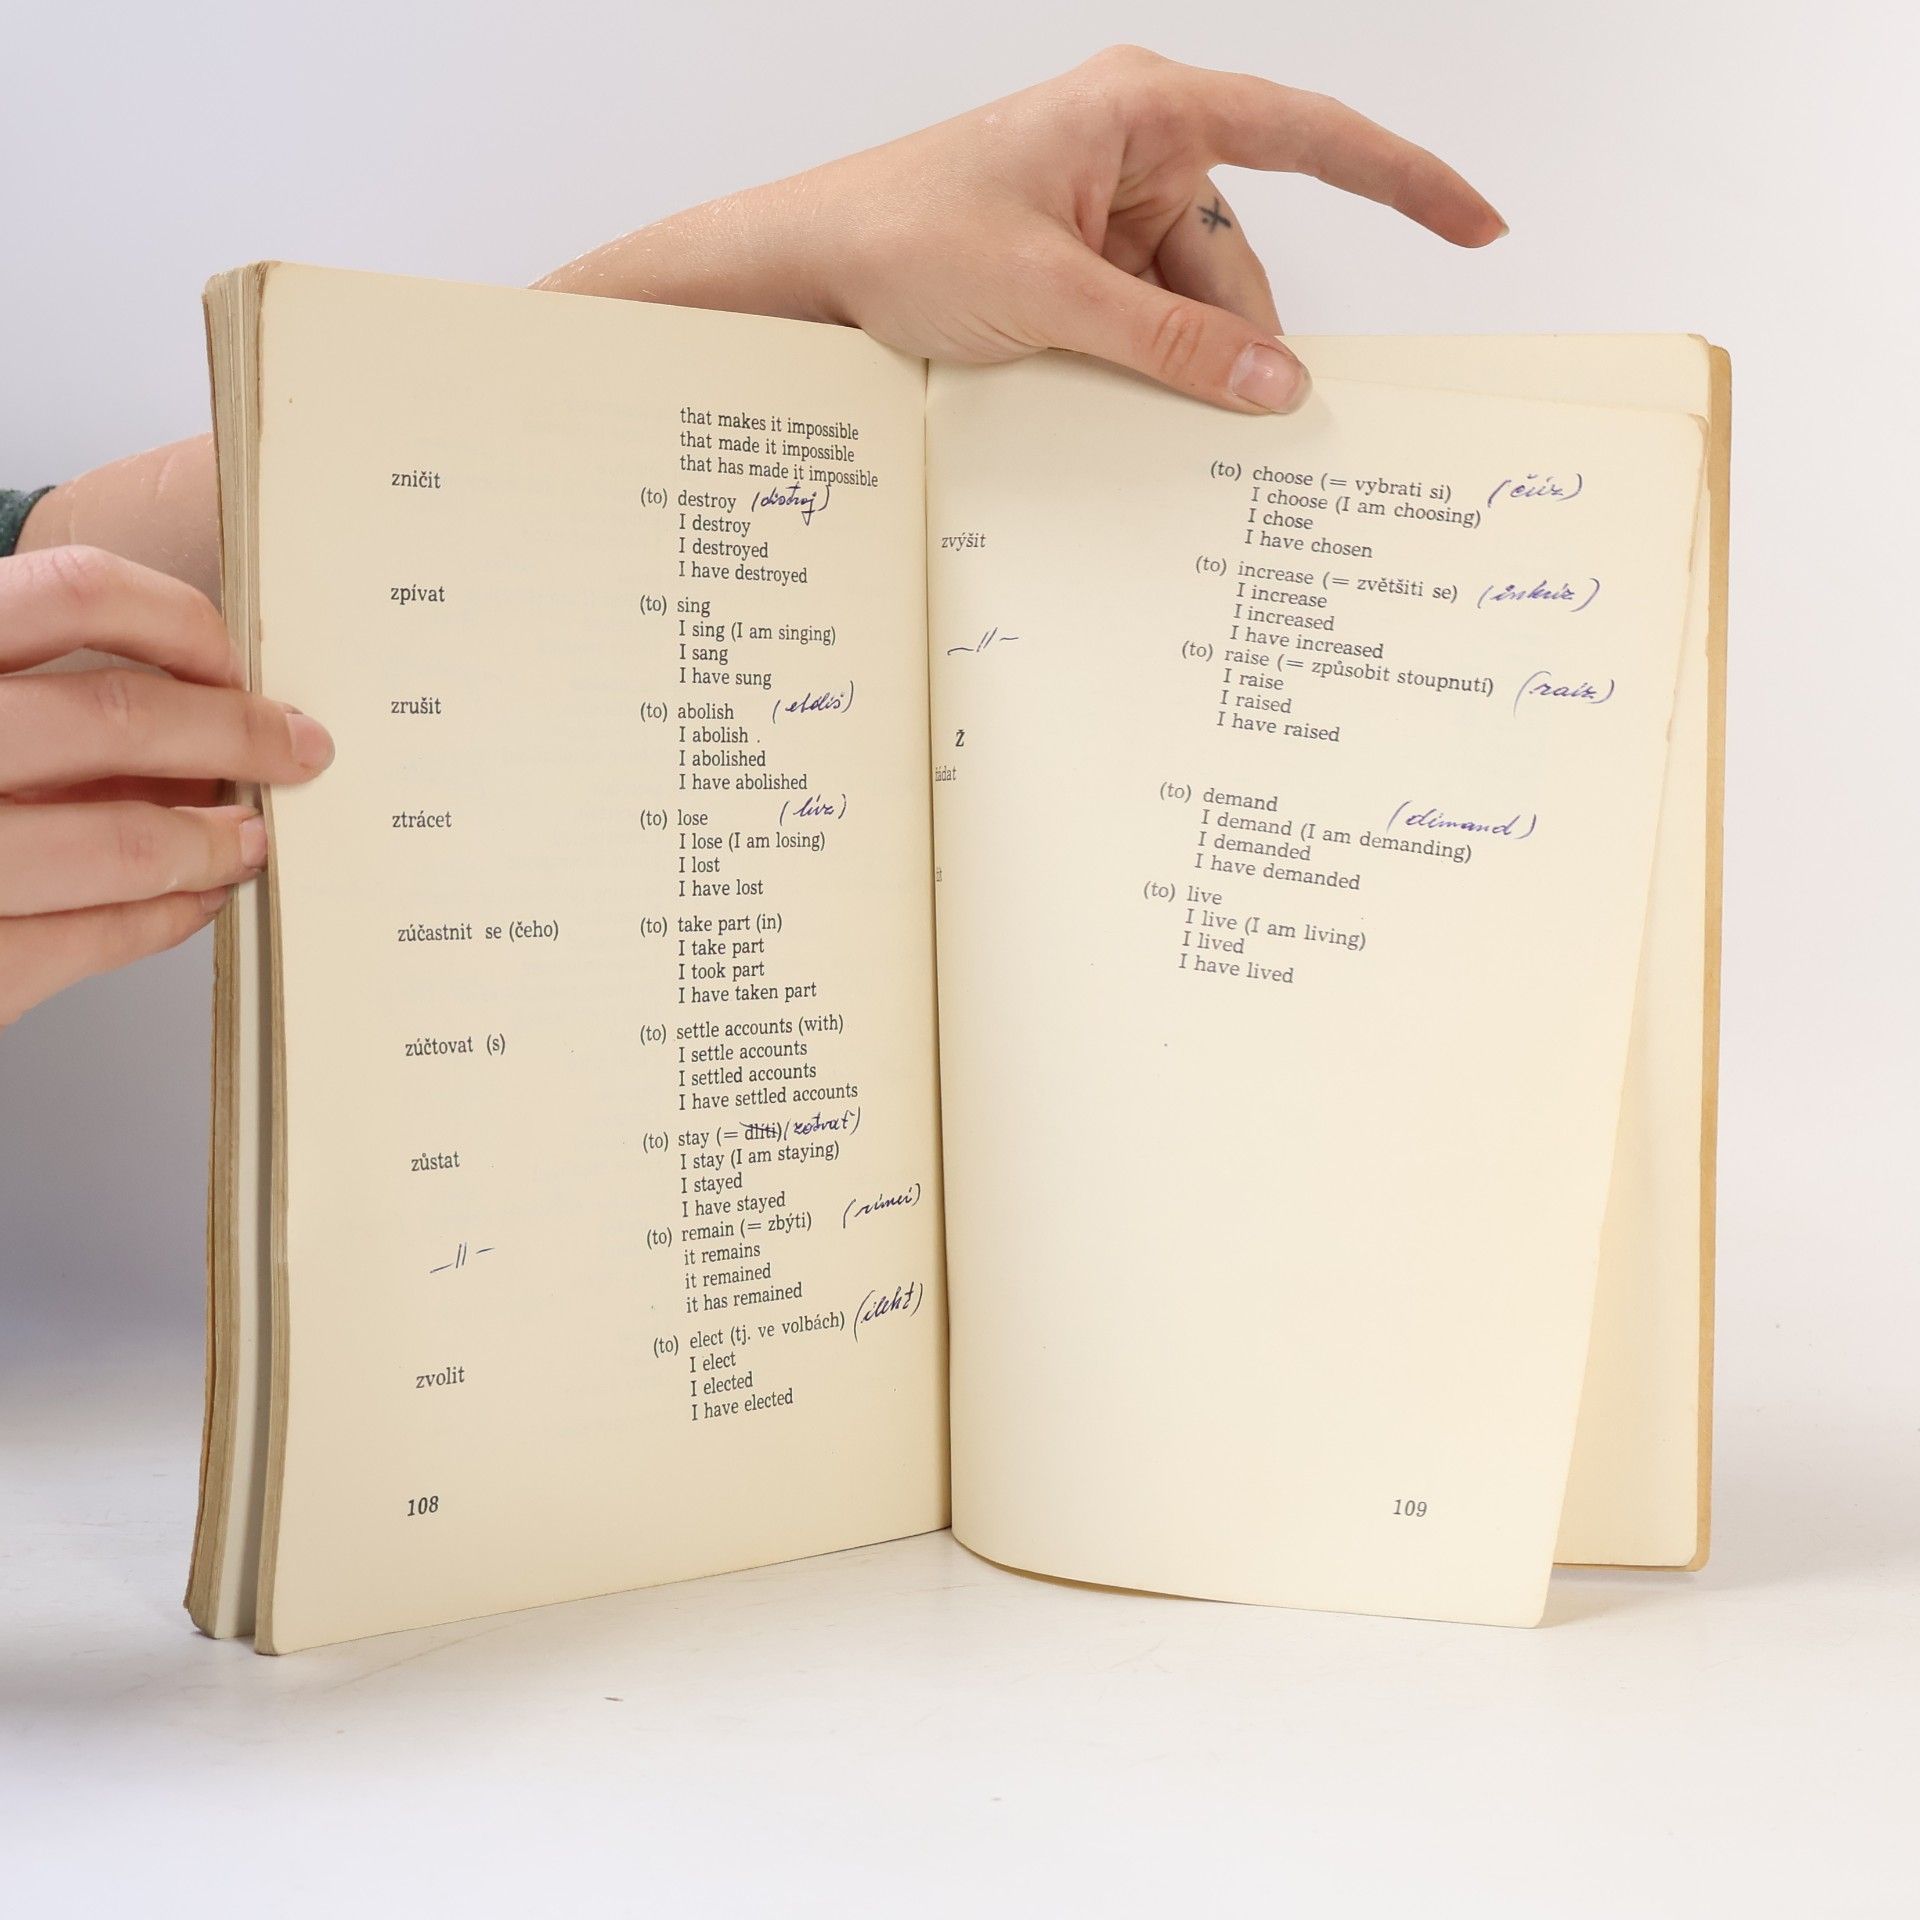 that makes it impossible
that made it impossible
that has made it impossible
zničit
(to) destroy (distroj)
I destroy
I destroyed
I have destroyed
zpívat
(to) sing
I sing (I am singing)
I sang
I have sung
zrušit
(to) abolish
I abolish .
I abolished
I have abolished
ztrácet
(to) lose
I lose (I am losing)
I lost
I have lost
zúčastnit se (čeho)
(to) take part (in)
I take part
I took part
I have taken part
zúčtovat (s)
(to) settle accounts (with)
I settle accounts
I settled accounts
I have settled accounts
zůstat
(to) stay (= dlíti) (zotrvat)
I stay (I am staying)
I stayed
I have stayed
—//—
(to) remain (= zbýti)
it remains
it remained
it has remained
zvolit
(to) elect (tj. ve volbách) (ilekt)
I elect
I elected
I have elected
108
(to) choose (= vybrati si)
I choose (I am choosing)
I chose
I have chosen
zvýšit
(to) increase (= zvětšiti se) (inkríz)
I increase
I increased
I have increased
—//—
(to) raise (= způsobit stoupnutí) (raiz)
I raise
I raised
I have raised
Ž
žádat
(to) demand (dimand)
I demand (I am demanding)
I demanded
I have demanded
(to) live
I live (I am living)
I lived
I have lived
109